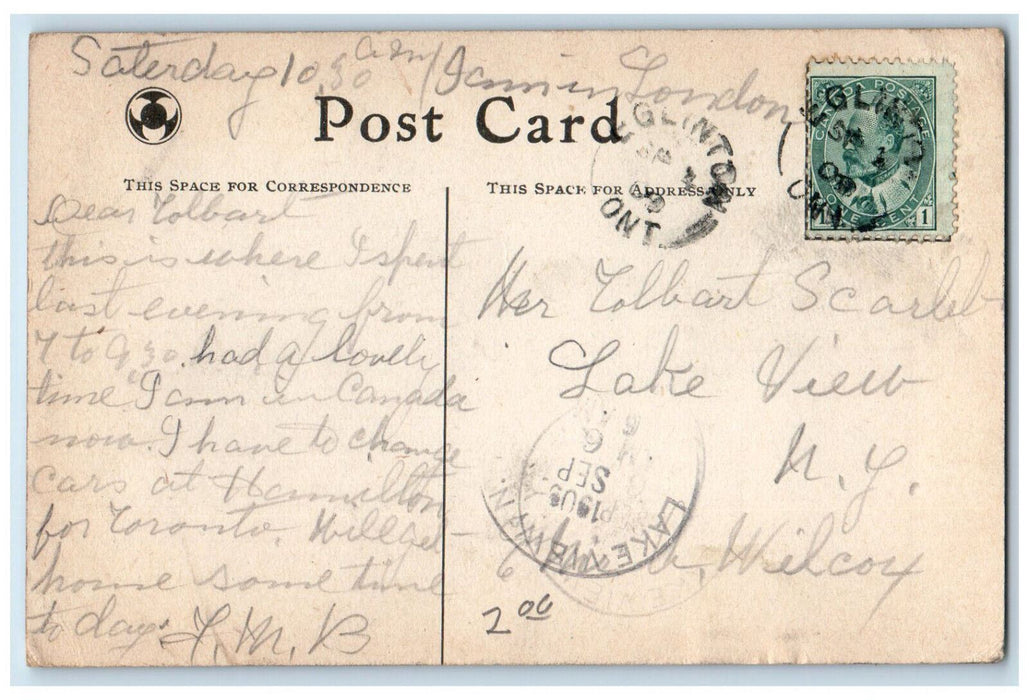 Saterday 10,30 am / I am in London
Post Card
This Space for Correspondence
This Space for Address Only
EGLINTON
SP 4
09
ONT.
EGLINTON
SP 4
09
ONT.
CANADA POSTAGE
ONE CENT
1 1
Dear Tolbart
this is where I spent
last evening from
7 to 9 30. had a lovely
time I am in Canada
now. I have to change
cars at Hamilton
for Toronto. Will get
home some time
to day. F. M. B
Tolbart Scarlet
Lake View
N. Y.
Wilcox
LAKE VIEW
SEP
6
2 00